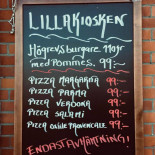 LILLAKIOSKEN
HÖGREVSburgare 110gr
med Pommes. 99:-
PIZZA MARGARITA 99:-
PIZZA PARMA 99:-
PIZZA VERDURA 99:-
PIZZA SALAMI 99:-
PIZZA PROVENCALE 99:-
ENDAST AVHÄMTNING!